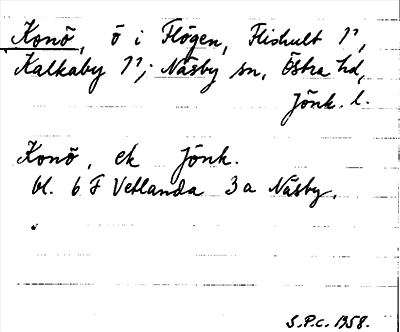 Konö, ö i Flögen, Flishult 1?,
Kalkaby 1?; Näsby sn, Östra hd,
Jönk. l.
Konö, ek Jönk.
bl. 6 F Vetlanda 3 a Näsby.
S.P.C. 1958.